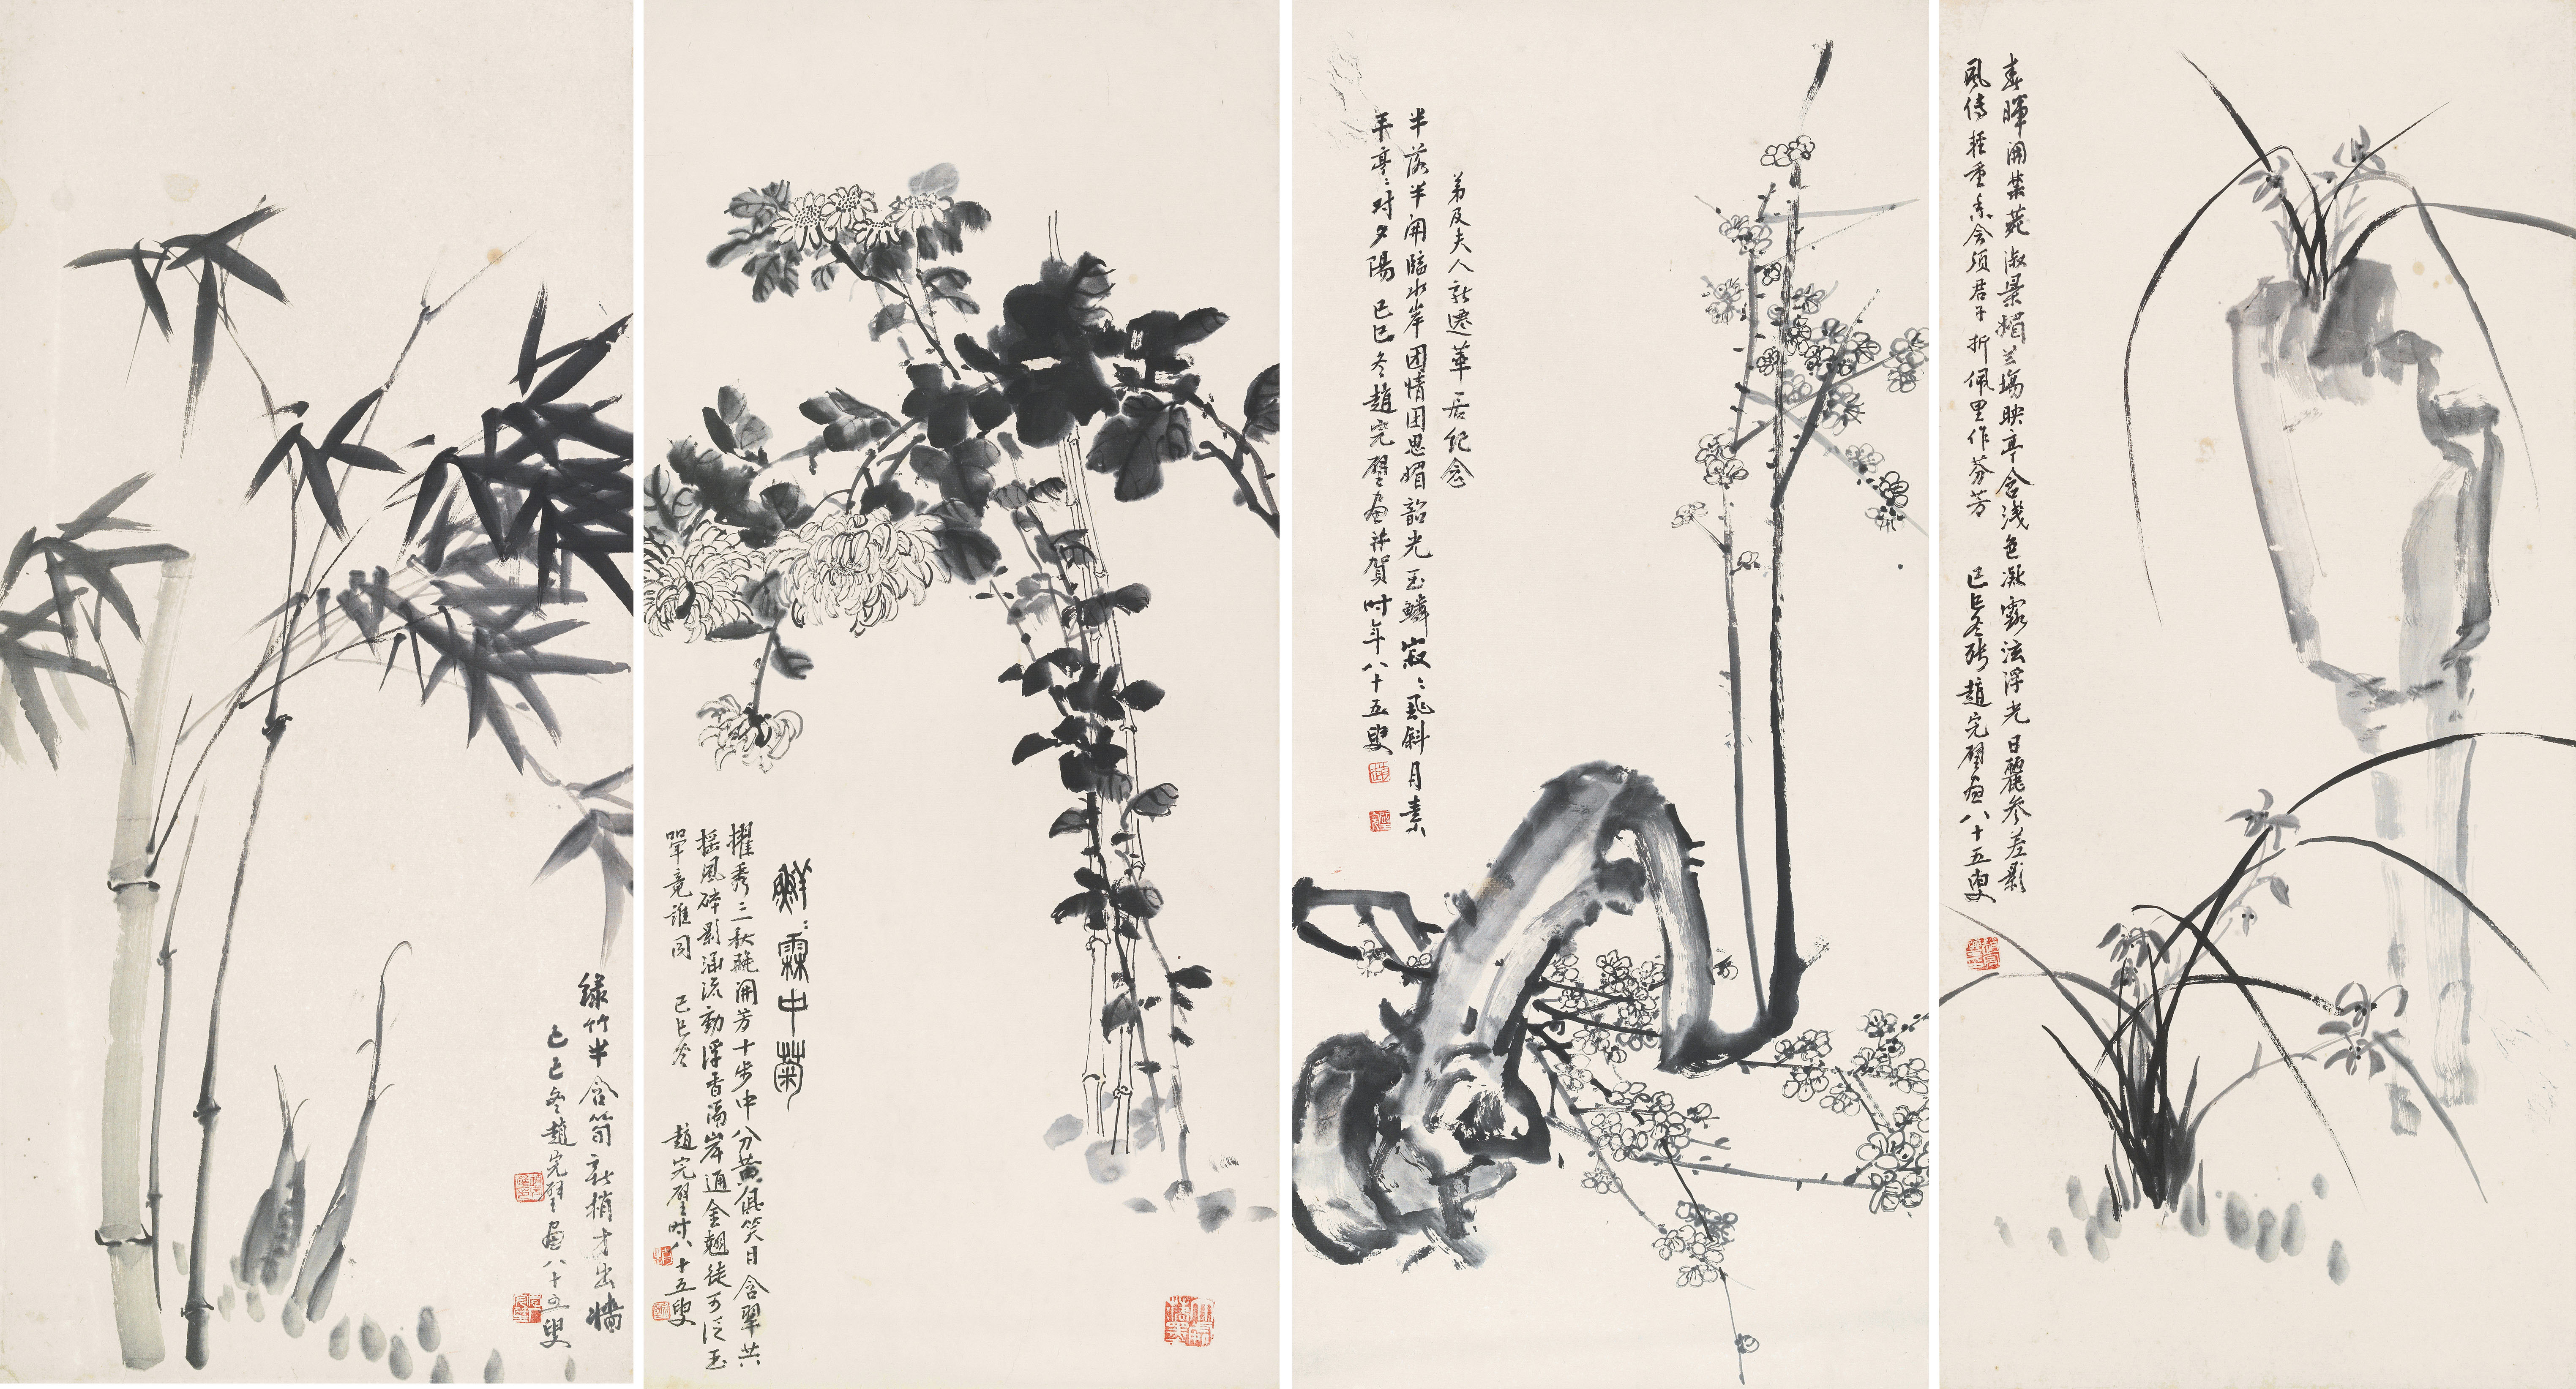 春暉開禁苑淑景媚蘭場映亭含淺色凝露泫浮光日麗參差影
風傳輕重香會須君子折佩里作芬芳 己巳冬殘趙完璧畫八十五叟
弟及夫人新遷華居紀念
半落半開臨水岸团情团思媚韶光玉鱗寂〻飛斜月素
年亭〻對夕陽 己巳冬趙完璧畫並賀時年八十五叟
鮮〻霜中菊
擢秀三秋晚開芳十步中分黃俱笑日含翠共
搖風碎影涵流動浮香隔岸通金翹徒可泛玉
斝竟誰同 己巳冬 趙完璧時八十五叟
綠竹半含筍新梢才出牆
己巳冬趙完璧畫八十五叟